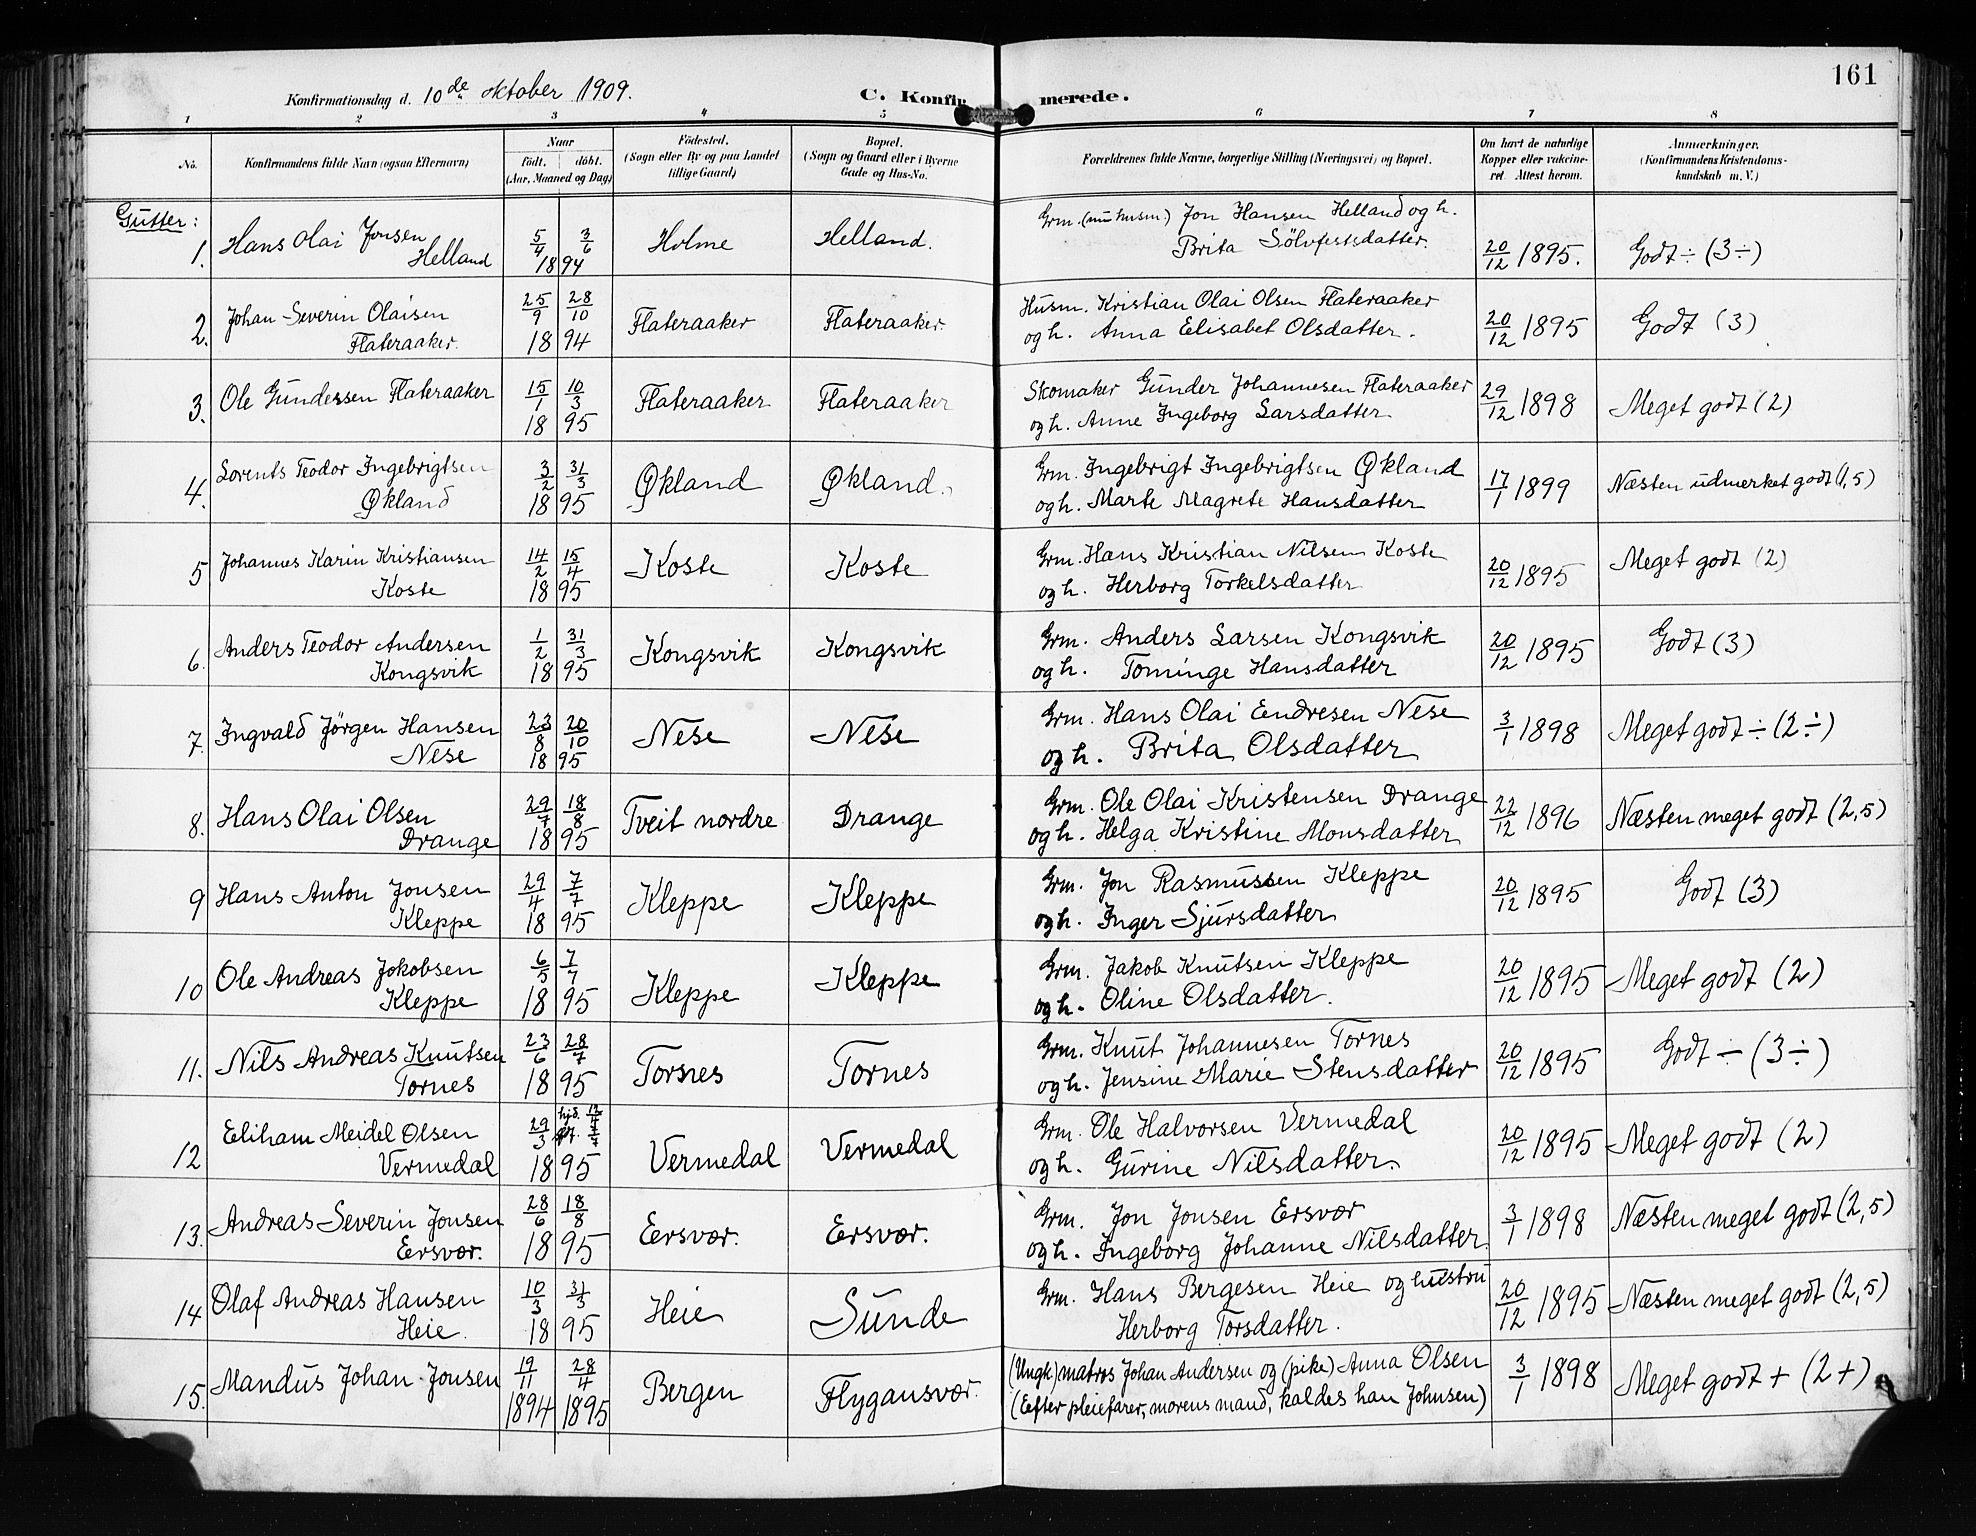 161
Konfirmationsdag d. 10de oktober 1909.
C. Konfirmerede.
1 2 3 4 5 6 7 8
No. Konfirmandens fulde Navn (ogsaa Efternavn)
Naar
födt. döbt.
(Aar, Maaned og Dag)
Födested.
(Sogn eller By og paa Landet
tillige Gaard)
Bopæl.
(Sogn og Gaard eller i Byerne
Gade og Hus-No.
Forældrenes fulde Navne, borgerlige Stilling (Næringsvei) og Bopæl.
Om havt de naturlige
Kopper eller vakcine-
ret. Attest herom.
Anmærkninger.
(Konfirmandens Kristendoms-
kundskab m. V.)
Gutter:
1. Hans Olai Jonsen Helland 5/4 3/6 1894 Holme Helland. Grm. (nu husm.) Jon Hansen Helland og h. Brita Sölvfestsdatter. 20/12 1895. Godt ÷ (3÷)
2. Johan Severin Olaisen Flateraaker. 25/9 28/10 1894 Flateraaker Flateraaker. Husm. Kristian Olai Olsen Flateraaker og h. Anna Elisabet Olsdatter. 20/12 1895 Godt (3)
3. Ole Gundersen Flateraaker 15/1 10/3 1895 Flateraaker Flateraaker Skomaker Gunder Johannesen Flateraaker og h. Anne Ingeborg Larsdatter 29/12 1898 Meget godt (2)
4. Lorents Teodor Ingebrigtsen Økland 3/2 31/3 1895 Økland Økland. Grm. Ingebrigt Ingebrigtsen Økland og h. Marte Magrete Hansdatter 17/1 1899 Næsten udmerket godt (1,5)
5 Johannes Karin Kristiansen Koste 14/2 15/4 1895 Koste Koste Grm. Hans Kristian Nilsen Koste og h. Herborg Torkelsdatter 20/12 1895 Meget godt (2)
6. Anders Teodor Andersen Kongsvik 1/2 31/3 1895 Kongsvik Kongsvik Grm. Anders Larsen Kongsvik og h. Tominge Hansdatter 20/12 1895 Godt (3)
7. Ingvald Jörgen Hansen Nese 23/8 20/10 1895 Nese Nese Grm. Hans Olai Endresen Nese og h. Brita Olsdatter 3/1 1898 Meget godt ÷ (2÷)
8. Hans Olai Olsen Drange 29/7 18/8 1895 Tveit nordre Drange Grm. Ole Olai Kristensen Drange og h. Helga Kristine Monsdatter 22/12 1896 Næsten meget godt (2,5)
9 Hans Anton Jonsen Kleppe 29/4 7/7 1895 Kleppe Kleppe Grm. Jon Rasmussen Kleppe og h. Inger Sjursdatter 20/12 1895 Godt (3)
10 Ole Andreas Jokobsen Kleppe 6/5 7/7 1895 Kleppe Kleppe Grm. Jakob Knutsen Kleppe og h. Oline Olsdatter. 20/12 1895 Meget godt (2)
11. Nils Andreas Knutsen Tornes 23/6 28/7 1895 Tornes Tornes Grm. Knut Johannesen Tornes og h. Jensine Marie Stensdatter 20/12 1895 Godt ÷ (3÷)
12 Eliham Meidel Olsen Vermedal 29/3 hjd. 7/7 1895 Vermedal Vermedal Grm. Ole Halvorsen Vermedal og h. Gurine Nilsdatter. 20/12 1895 Meget godt (2)
13. Andreas Severin Jonsen Eersvær. 28/6 18/8 1895 Eersvær. Ersvær. Grm. Jon Jonsen Ersvær og h. Ingeborg Johanne Nilsdatter. 3/1 1898 Næsten meget godt (2,5)
14 Olaf Andreas Hansen Heie. 10/3 31/3 1895 Heie Sunde Grm. Hans Bergesen Heie og hustru Herborg Torsdatter. 20/12 1895 Næsten meget godt (2,5)
15. Mandus Johan Jonsen 19/11 1894 28/4 1895 Bergen Flygansvær. (Ungk) matros Johan Andersen og (pike) Anna Olsen (Efter pleiefarer, morens mand, kaldes han Johnsen) 3/1 1898 Meget godt + (2+)